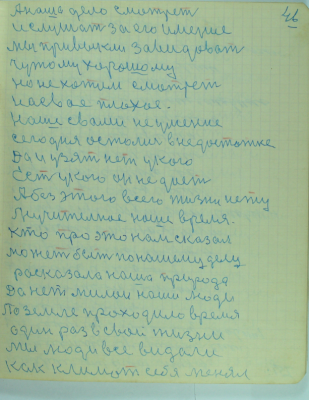 46
А наша дело смотрет
и слушат за его имение
мы привикли завидоват
чужому хорошому
но не хотим смотрет
на свае плахае.
Наше с вами не умение
сегодня остолис в недостатке
Да и узят нет у кого
Ест у кого он не дает
А без этого всего жизни нету
Лучителная наше время.
Кто про это нам сказал
может быт по нашему делу
расказала наша природа
Да нет милаи наши люди
По земле проходило время
один раз в свой жизни
мы люди все видали
как климат себя менял